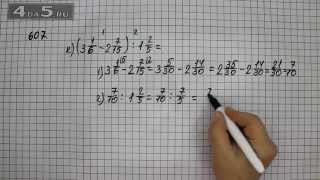 4DA5.RU
607
к) (3 1/6 - 2 7/15) : 1 2/5 =
1) 3 1/6 - 2 7/15 = 3 5/30 - 2 14/30 = 2 35/30 - 2 14/30 = 21/30 = 7/10
2) 7/10 : 1 2/5 = 7/10 : 7/5 = 7